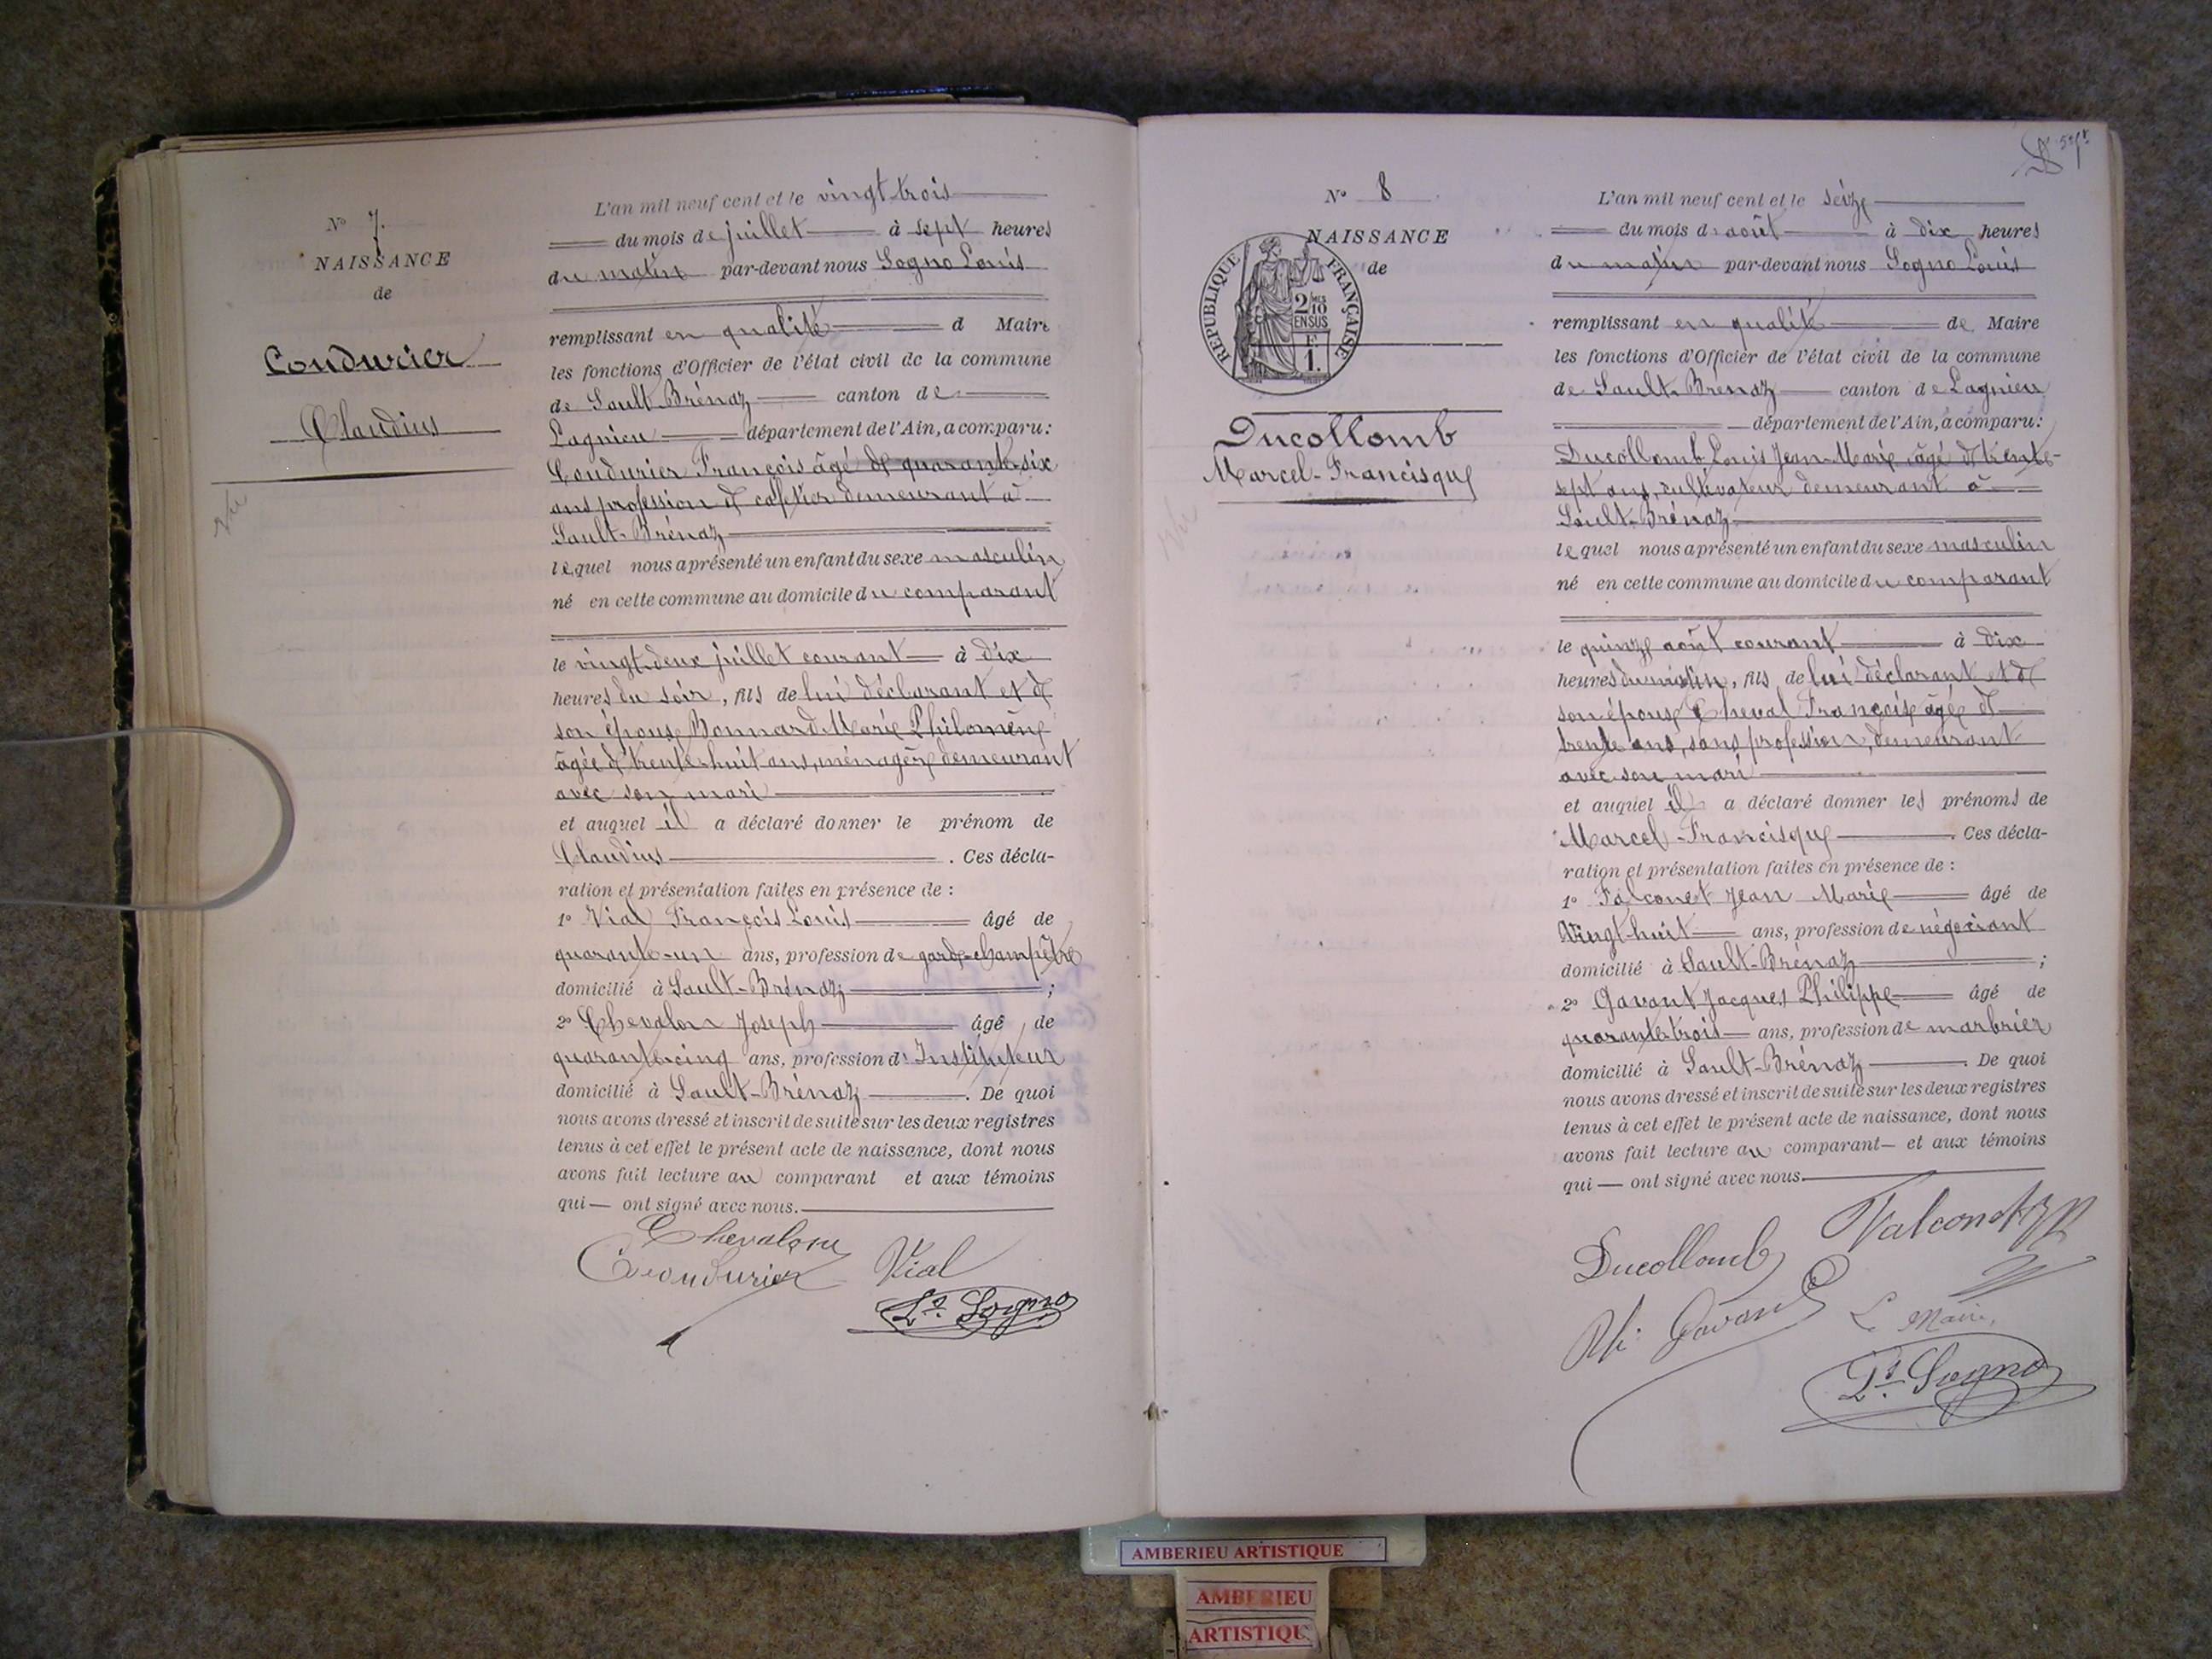 N° 7.
NAISSANCE
de
Coudurier
Claudius
Vu
L'an mil neuf cent et le vingt-trois
du mois de juillet à sept heures
du matin par-devant nous Sogno Louis
remplissant en qualité d Maire
les fonctions d'Officier de l'état civil de la commune
de Sault-Brénaz canton de
Lagnieu département de l'Ain, a comparu:
Coudurier François âgé de quarante-six
ans profession de cafetier demeurant à
Sault-Brénaz
lequel nous a présenté un enfant du sexe masculin
né en cette commune au domicile du comparant
le vingt-deux juillet courant à dix
heures du soir, fils de lui déclarant et de
son épouse Bonnard Marie Philomène
âgée de trente-huit ans, ménagère demeurant
avec son mari
et auquel il a déclaré donner le prénom de
Claudius . Ces décla-
ration et présentation faites en présence de :
1° Vial François Louis âgé de
quarante-un ans, profession de garde-champêtre
domicilié à Sault-Brénaz ;
2° Chevalon Joseph âgé de
quarante-cinq ans, profession d' Instituteur
domicilié à Sault-Brénaz . De quoi
nous avons dressé et inscrit de suite sur les deux registres
tenus à cet effet le présent acte de naissance, dont nous
avons fait lecture au comparant et aux témoins
qui — ont signé avec nous.
Chevalon
Coudurier Vial
Ls. Sogno
N° 8
NAISSANCE
de
REPUBLIQUE FRANÇAISE
2/10 EN SUS
F. 1.
Ducollomb
Marcel-Francisque
Vu
L'an mil neuf cent et le seize
du mois d'août à dix heures
du matin par-devant nous Sogno Louis
remplissant en qualité de Maire
les fonctions d'Officier de l'état civil de la commune
de Sault-Brénaz canton de Lagnieu
département de l'Ain, a comparu:
Ducollomb Louis Jean-Marie âgé de trente-
sept ans, cultivateur demeurant à
Sault-Brénaz
lequel nous a présenté un enfant du sexe masculin
né en cette commune au domicile du comparant
le quinze août courant à dix
heures du matin, fils de lui déclarant et de
son épouse Cheval Françoise âgée de
trente ans, sans profession, demeurant
avec son mari
et auquel il a déclaré donner les prénoms de
Marcel-Francisque . Ces décla-
ration et présentation faites en présence de :
1° Falconet Jean Marie âgé de
Vingt-huit ans, profession de négociant
domicilié à Sault-Brénaz ;
2° Gavant Jacques Philippe âgé de
quarante-trois ans, profession de marbrier
domicilié à Sault-Brénaz . De quoi
nous avons dressé et inscrit de suite sur les deux registres
tenus à cet effet le présent acte de naissance, dont nous
avons fait lecture au comparant — et aux témoins
qui — ont signé avec nous.
Ducollomb
Phi Gavant Le Maire,
Ls. Sogno
AMBERIEU ARTISTIQUE
AMBERIEU
ARTISTIQU